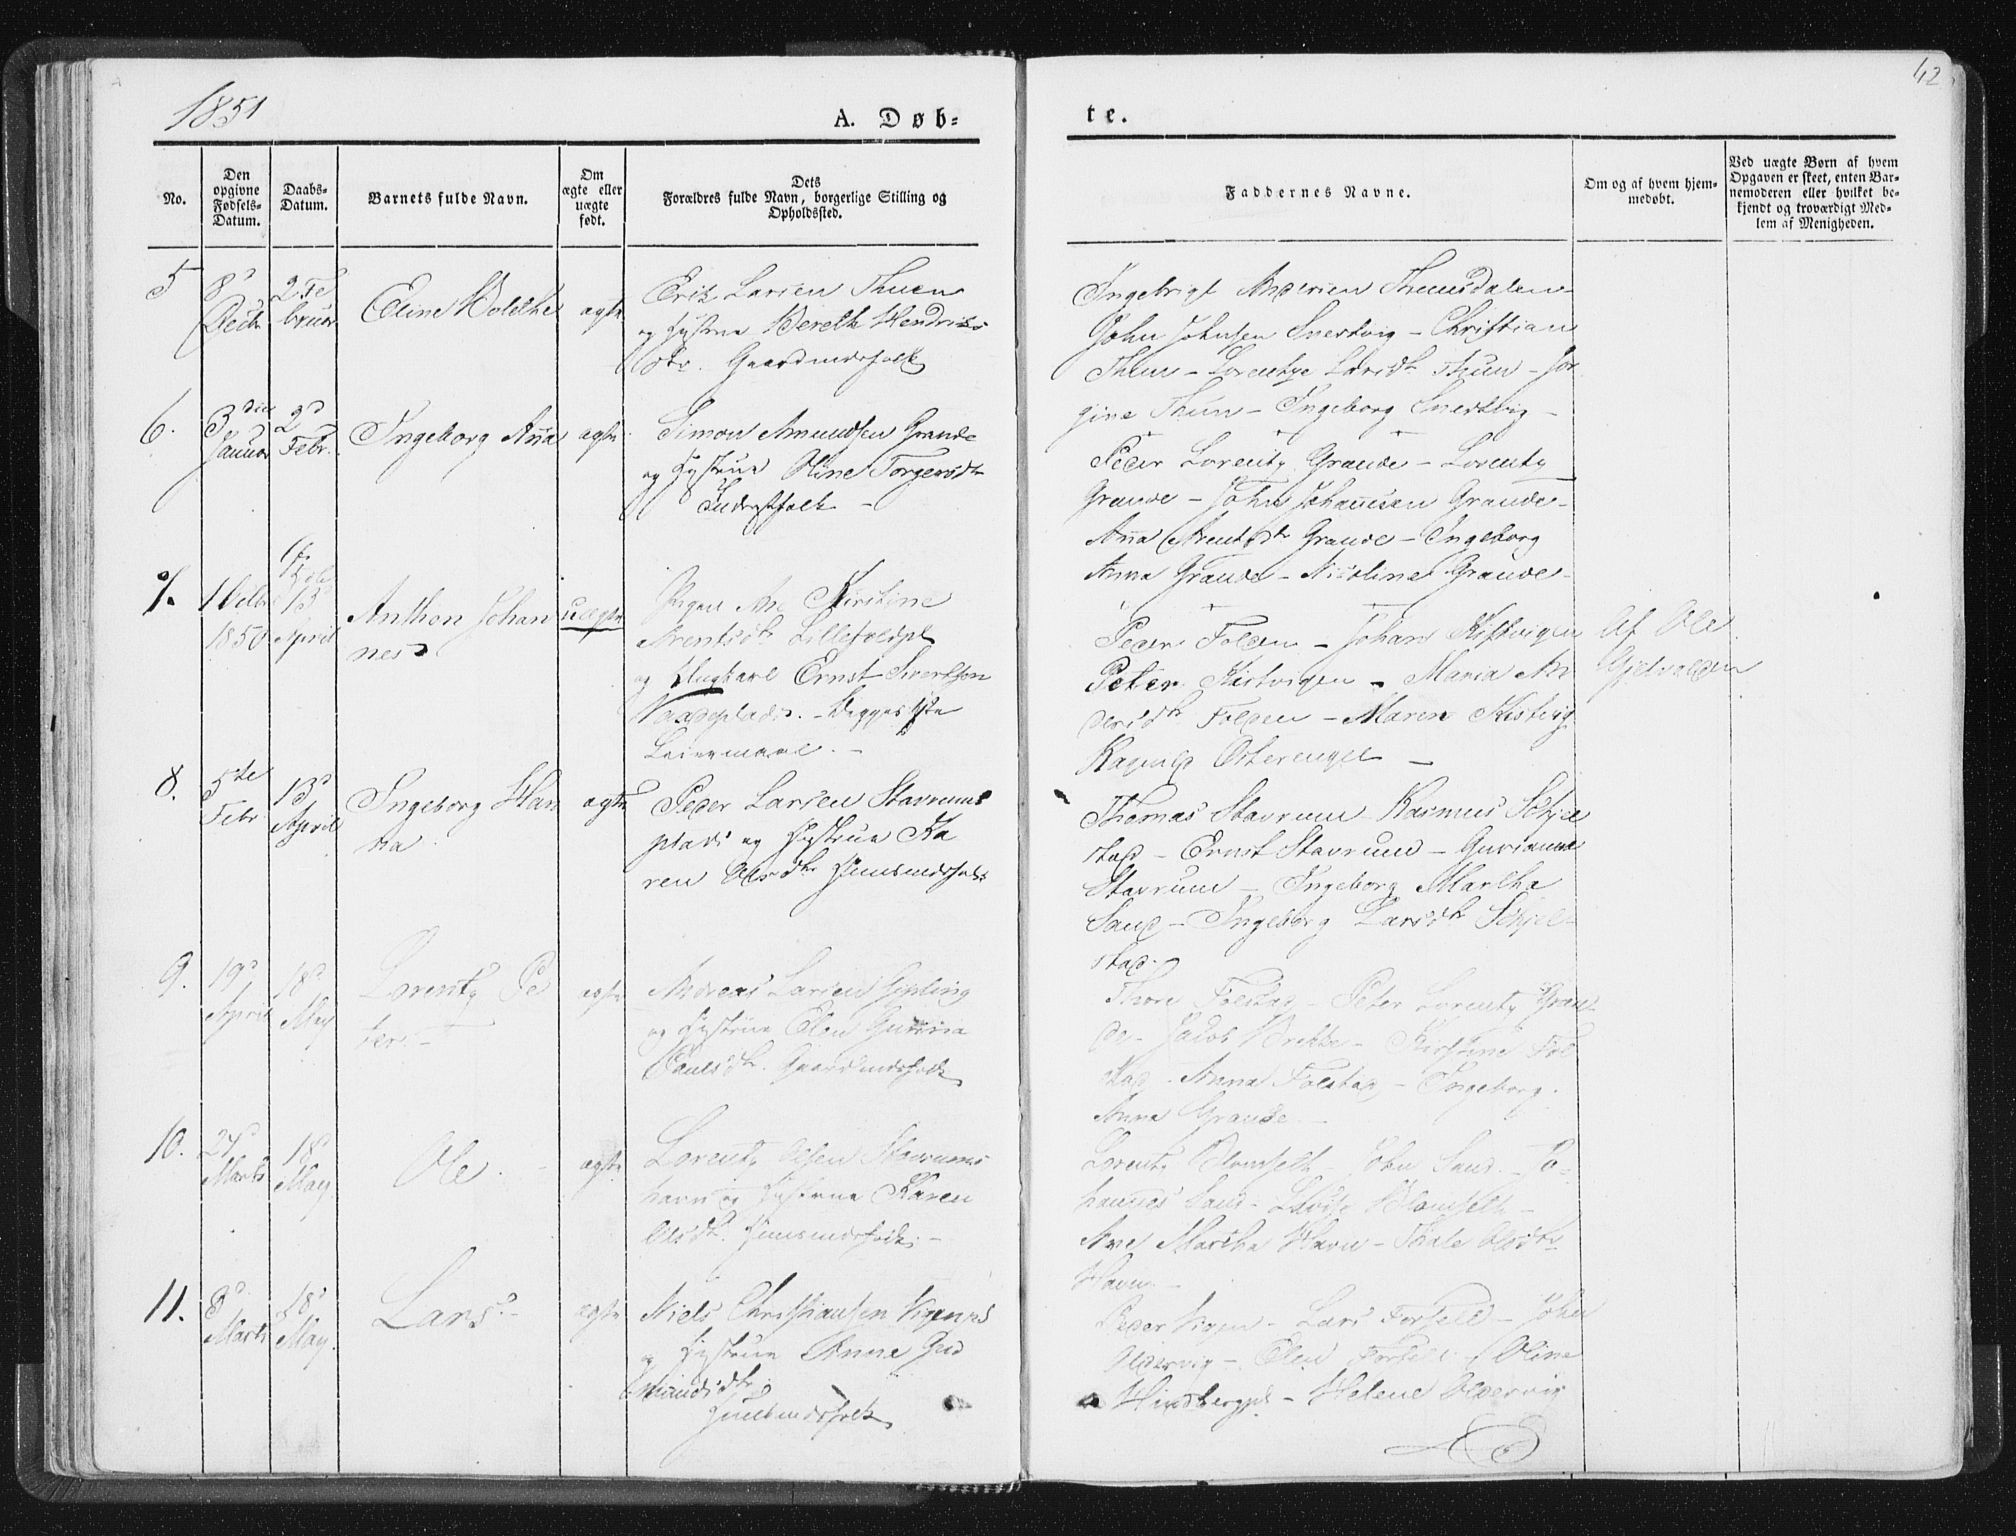 1851
A. Døb=
te.
42
No.
Den opgivne Fødsels-Datum.
Daabs-Datum.
Barnets fulde Navn.
Om ægte eller uægte født.
Dets Forældres fulde Navn, borgerlige Stilling og Opholdssted.
Faddernes Navne.
Om og af hvem hjemmedøbt.
Ved uægte Børn af hvem Opgaven er skeet, enten Barnemoderen eller hvilket bekjendt og troværdigt Medlem af Menigheden.
5
8d
2 Fe
bruar
Eline Bolethe
ægte
Erik Larsen Thuen
og Hustrue Bereth Hendriks
dtr. Gaardmdsfolk
Ingebrigt Andersen Thuesdalen
John Johnsen Snertvig - Christian
Thun - Lorentze Larsdtr Thun - Jør
gine Thun - Ingeborg Snertvig -
6.
3die
Januar
2d
Febr.
Ingeborg Anna
ægte
Simon Amundsen Grande
og Hustrue Oline Torgersdtr
Inderstfolk -
Peder Lorentz Grande - Lorentz
Grande - John Johannsen Grande -
Anna Arentsdtr Grande - Ingeborg
Anna Grande - Nicoline Grande -
7.
1850
13d
April
Anthon Johan
nes
uægte
Pigen Kirstine
Arentsdtr Lillefoldpl
og Ungkarl Ernst Sivertsen
Begges 1ste
Leiermaal. -
Peder Folden - Johan Kistvigen
Peter Kistvigen - Maria An
dersdtr Folden - Maren Kistvig
Ragnild Østerengen -
Af Ole
Gjelvolden
8.
5te
Febr
13d
April
Ingeborg Han
na
ægte
Peder Larsen Stavrums
plads og Hustrue Ka
ren Olsdtr Huusmdsfolk
Thomas Stavrum - Rasmus Schjel
stad - Ernst Stavrum - Gurianna
Stavrum - Ingeborg Martha
Sand - Ingeborg Larsdtr Schjel-
stad.
9.
19d
April
18d
May
Lorentz Pe
ter. -
ægte
Andreas Larsen Gipling
og Hustrue Elen Gurina
Paulsdtr. Gaardmdsfolk
Thore Folstad - Peter Lorentz Gran
de - Jacob Brekke - Kirstine Fol
stad - Anna Folstad - Ingeborg
Anna Grande -
10.
27d
Marts
18d
May
Ole.
ægte
Lorentz Olsen Stavrums
havn og Hustrue Karen
Olsdtr. Huusmdsfolk -
Lorentz Blomseth - John Sand - Jo-
hannes Sand - Blomseth -
Ane Martha Havn - Olsdtr
Havn -
11.
8d
Marts
18d
May
Lars -
ægte
Niels Christiansen
og Hustrue Anne Gud
mundsdtr
Huusmdsfolk
Peder Vigen - Lars Forsell - John
Oldervig - Elen Forsell - Oline
Hindbergpl - Helene Oldervig